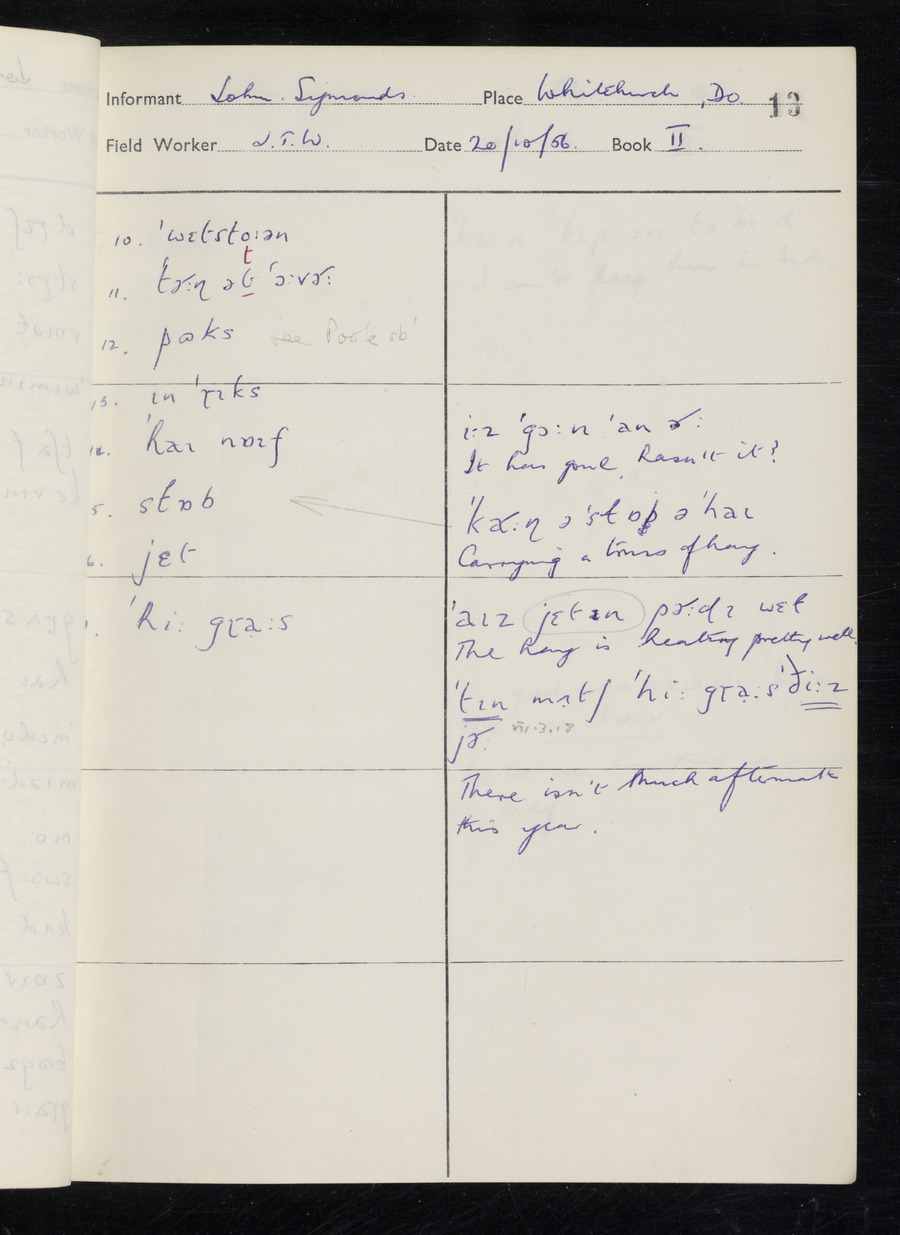 Informant John. Symonds. Place Whitchurch, Do. 13
Field Worker J.T.W. Date 20/10/56. Book II.
10. ˈwɛtstoːən
t
11. ˈtɚːn̩ ət ˈɔːvɚː
12. pɒks see Book
13. ɪn ˈɽɪks
14. ˈhaɪ nɒɪf
5. stɒb
6. jɛt
ˈhiː gɽa̤ːs
iːz ˈgɔːn ˈan ɚː
It has gone, hasn't it?
ə ˈstɒp ə ˈhaɪ
Carrying a truss of hay.
ˈaɪz jɛtɪn pɚːdɪ wɛt
The hay is heating pretty well.
ˈtɪn mɪtʃ ˈhiː gɽa̤ːs ˈðiːz
jɚː VII.3.18
There isn't much aftermath
this year.